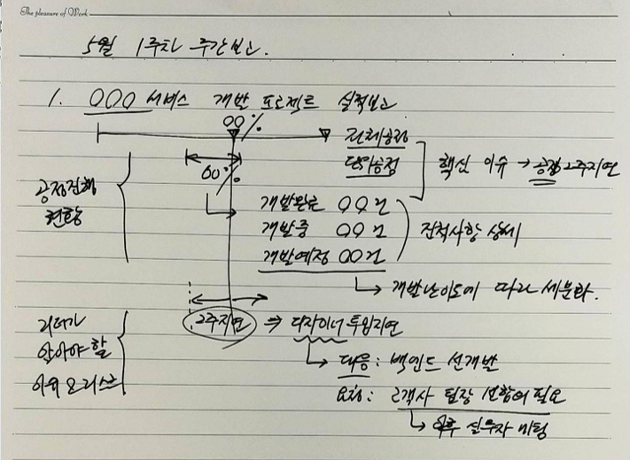 The pleasure of Work
5월 1주차 주간보고.
1. OOO 서비스 개발 프로젝트 실적보고
OO%
전체공정
단위공정
핵심 이슈 → 공정 2주지연
60%
공정진행
현황
개발완료 OO건
개발중 OO건
개발예정 OO건
진척사항 상세
개발난이도에 따라 세분화.
리더가
알아야 할
이슈 & 리스크
2주지연 ⇒ 디자이너 투입지연
대응: 백엔드 선개발
요청: 고객사 팀장 선합의 필요
이후 실무자 미팅